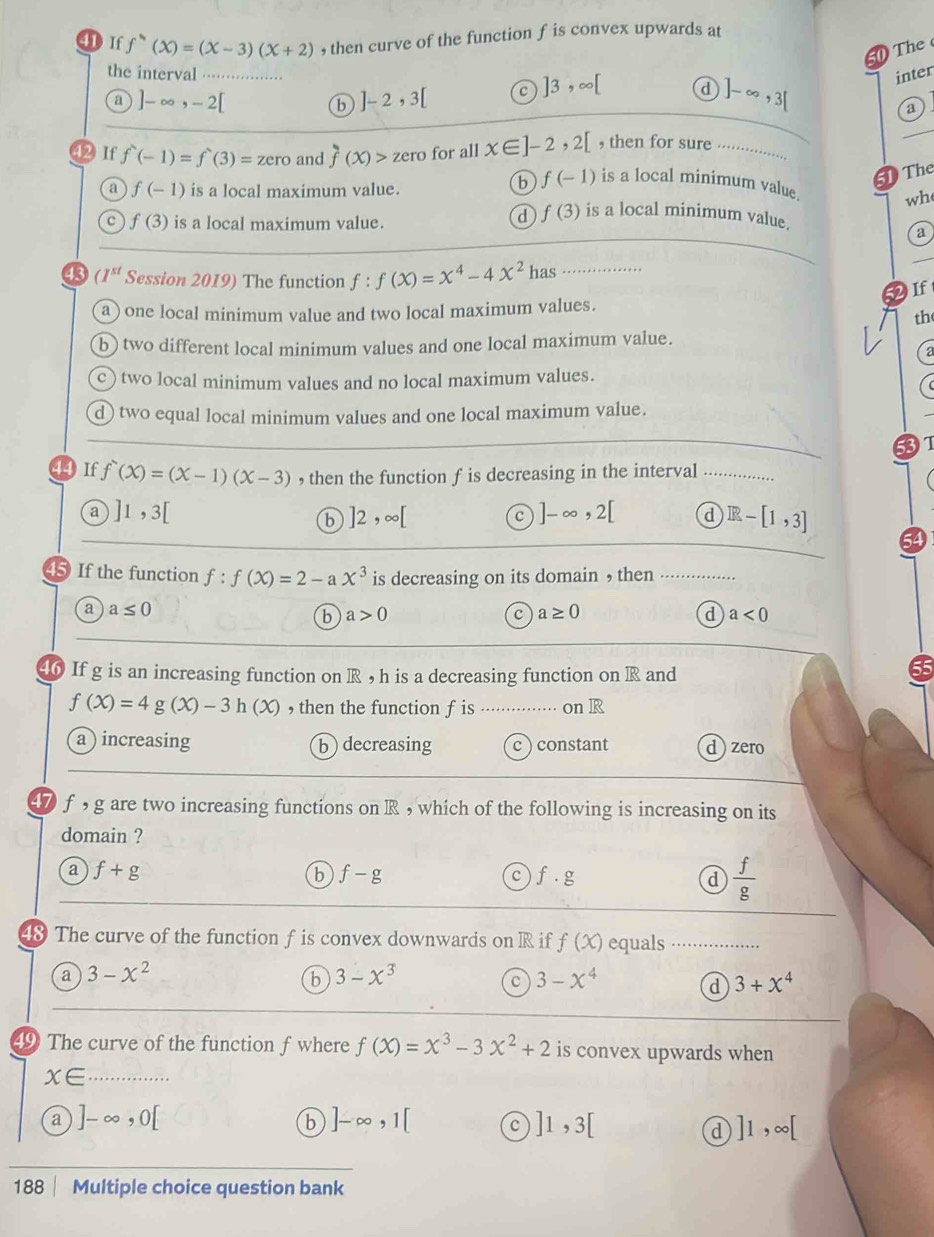 41 If f`` (X) = (X – 3) (X + 2) , then curve of the function f is convex upwards at
the interval ................
a ]– ∞ , – 2[ b ]– 2 , 3[ c ]3 , ∞[ d ]– ∞ , 3[
42 If f` (– 1) = f` (3) = zero and f`` (X) > zero for all X ∈ ]– 2 , 2[ , then for sure ................
a f (– 1) is a local maximum value. b f (– 1) is a local minimum value.
c f (3) is a local maximum value. d f (3) is a local minimum value.
43 (1st Session 2019) The function f : f (X) = X⁴ – 4 X² has ................
a one local minimum value and two local maximum values.
b two different local minimum values and one local maximum value.
c two local minimum values and no local maximum values.
d two equal local minimum values and one local maximum value.
44 If f` (X) = (X – 1) (X – 3) , then the function f is decreasing in the interval ..............
a ]1 , 3[ b ]2 , ∞[ c ]– ∞ , 2[ d ℝ – [1 , 3]
45 If the function f : f (X) = 2 – a X³ is decreasing on its domain , then ...............
a a ≤ 0 b a > 0 c a ≥ 0 d a < 0
46 If g is an increasing function on ℝ , h is a decreasing function on ℝ and
f (X) = 4 g (X) – 3 h (X) , then the function f is ............... on ℝ
a increasing b decreasing c constant d zero
47 f , g are two increasing functions on ℝ , which of the following is increasing on its
domain ?
a f + g b f – g c f . g d f/g
48 The curve of the function f is convex downwards on ℝ if f (X) equals .................
a 3 – X² b 3 – X³ c 3 – X⁴ d 3 + X⁴
49 The curve of the function f where f (X) = X³ – 3 X² + 2 is convex upwards when
X ∈ ................
a ]– ∞ , 0[ b ]– ∞ , 1[ c ]1 , 3[ d ]1 , ∞[
188 | Multiple choice question bank
50 The
inter
a ]
51 The
wh
a
52 If
th
a
53
54
55